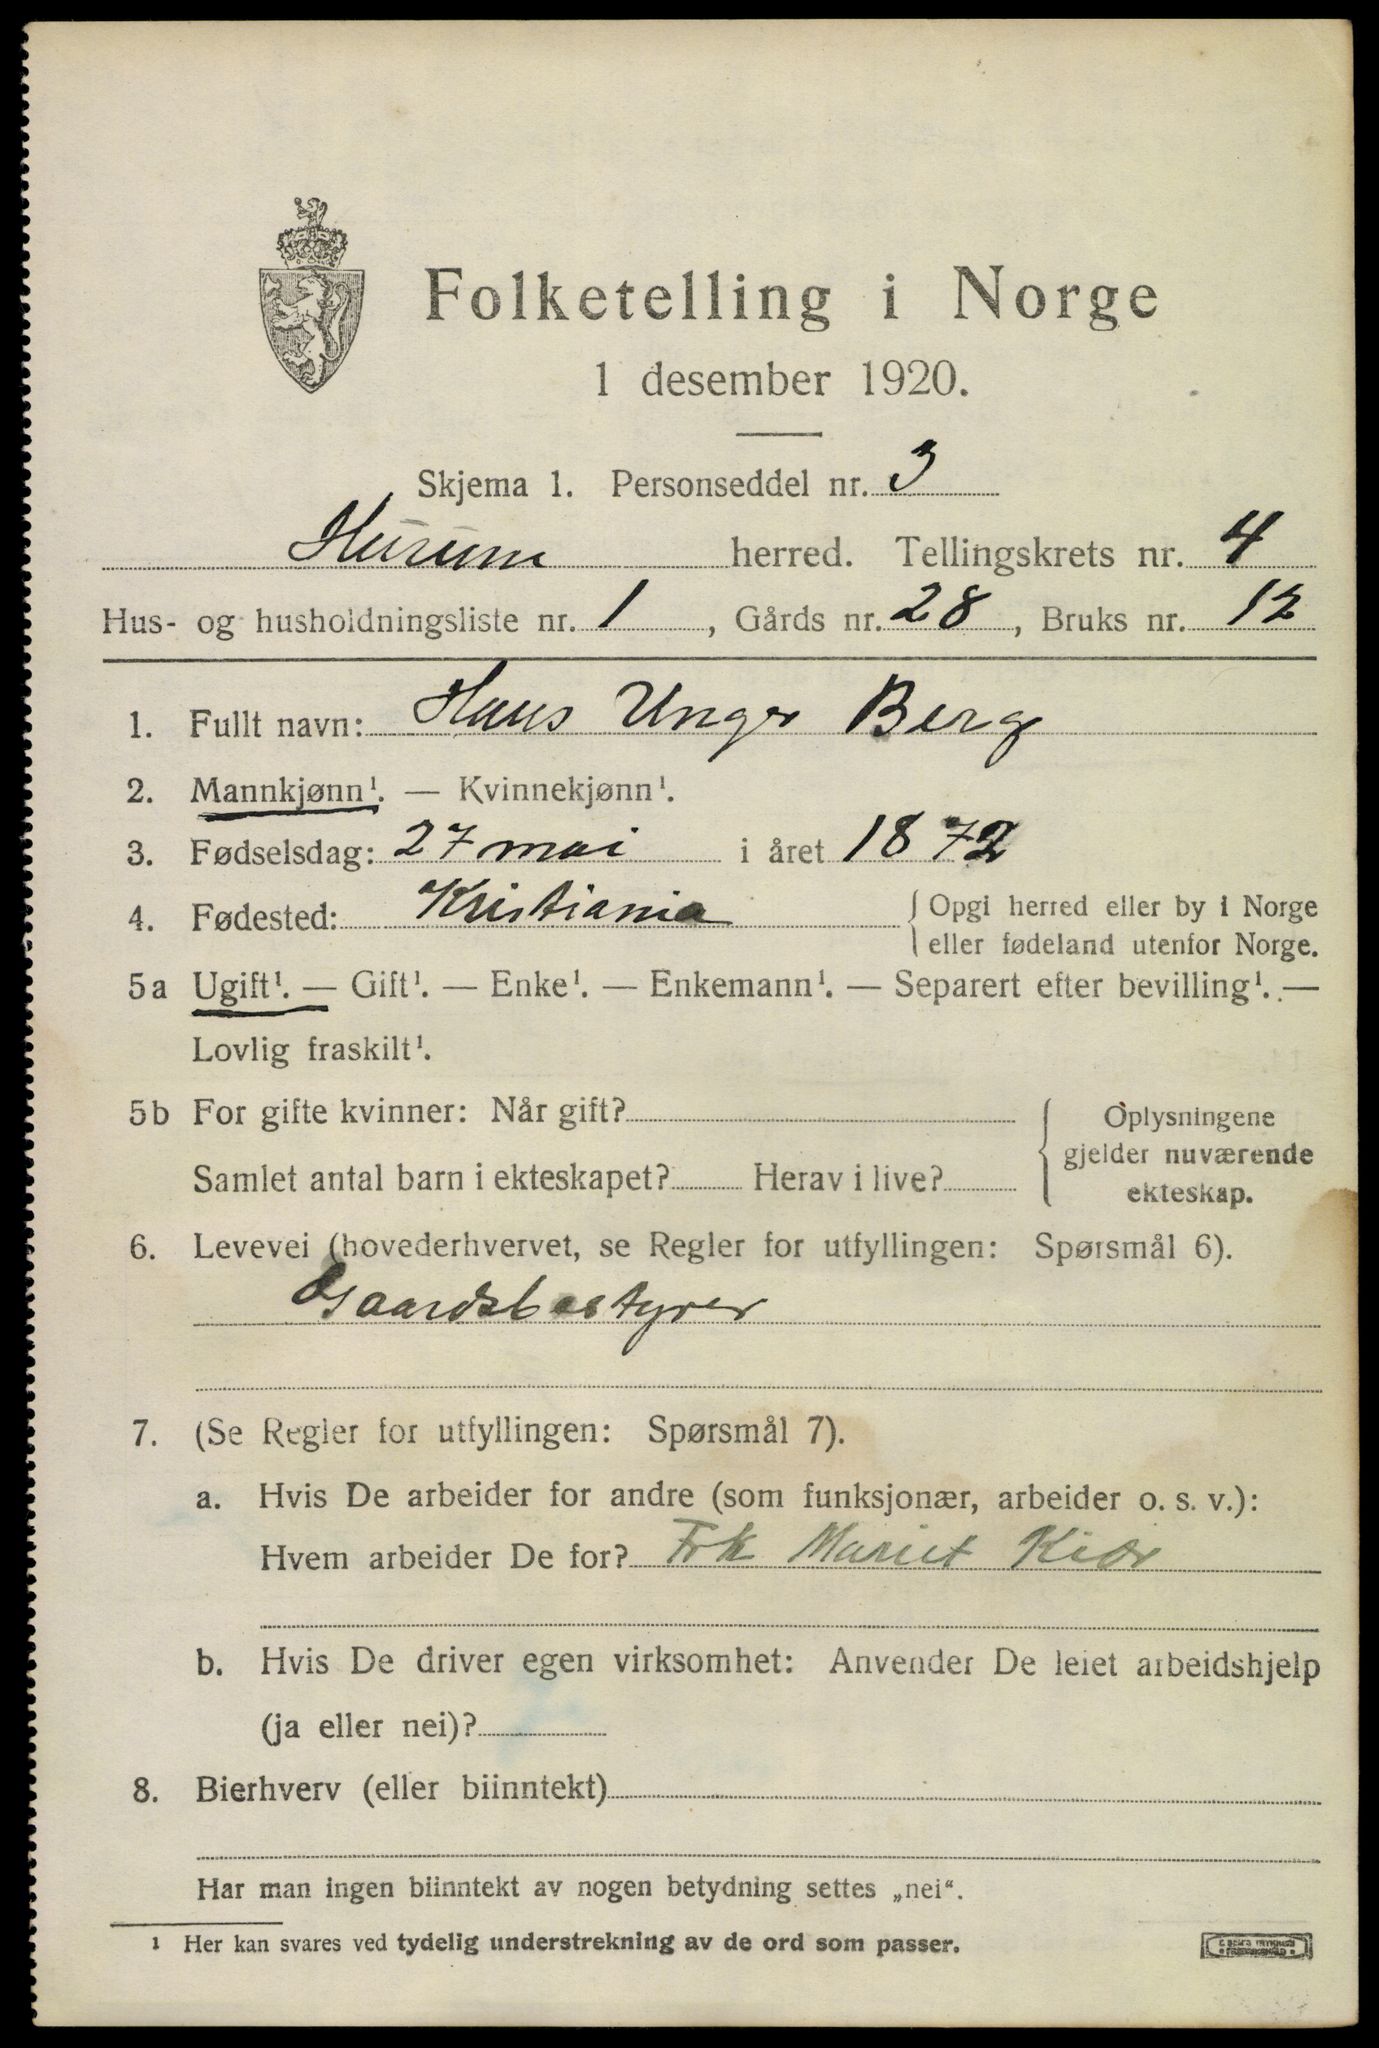 Folketelling i Norge
1 desember 1920.
Skjema 1. Personseddel nr. 3
Hurum herred. Tellingskrets nr. 4
Hus- og husholdningsliste nr. 1, Gårds nr. 28, Bruks nr. 12
1. Fullt navn: Hans Unger Berg
2. Mannkjønn¹. — Kvinnekjønn¹.
3. Fødselsdag: 27 mai i året 1872
4. Fødested: Kristiania { Opgi herred eller by i Norge
eller fødeland utenfor Norge.
5a Ugift¹. — Gift¹. — Enke¹. — Enkemann¹. — Separert efter bevilling¹. —
Lovlig fraskilt¹.
5b For gifte kvinner: Når gift?
Samlet antal barn i ekteskapet? Herav i live?
Oplysningene
gjelder nuværende
ekteskap.
6. Levevei (hovederhvervet, se Regler for utfyllingen: Spørsmål 6).
Gaardsbestyrer
7. (Se Regler for utfyllingen: Spørsmål 7).
a. Hvis De arbeider for andre (som funksjonær, arbeider o. s. v.):
Hvem arbeider De for? Frk Kiær
b. Hvis De driver egen virksomhet: Anvender De leiet arbeidshjelp
(ja eller nei)?
8. Bierhverv (eller biinntekt)
Har man ingen biinntekt av nogen betydning settes „nei“.
¹ Her kan svares ved tydelig understrekning av de ord som passer.